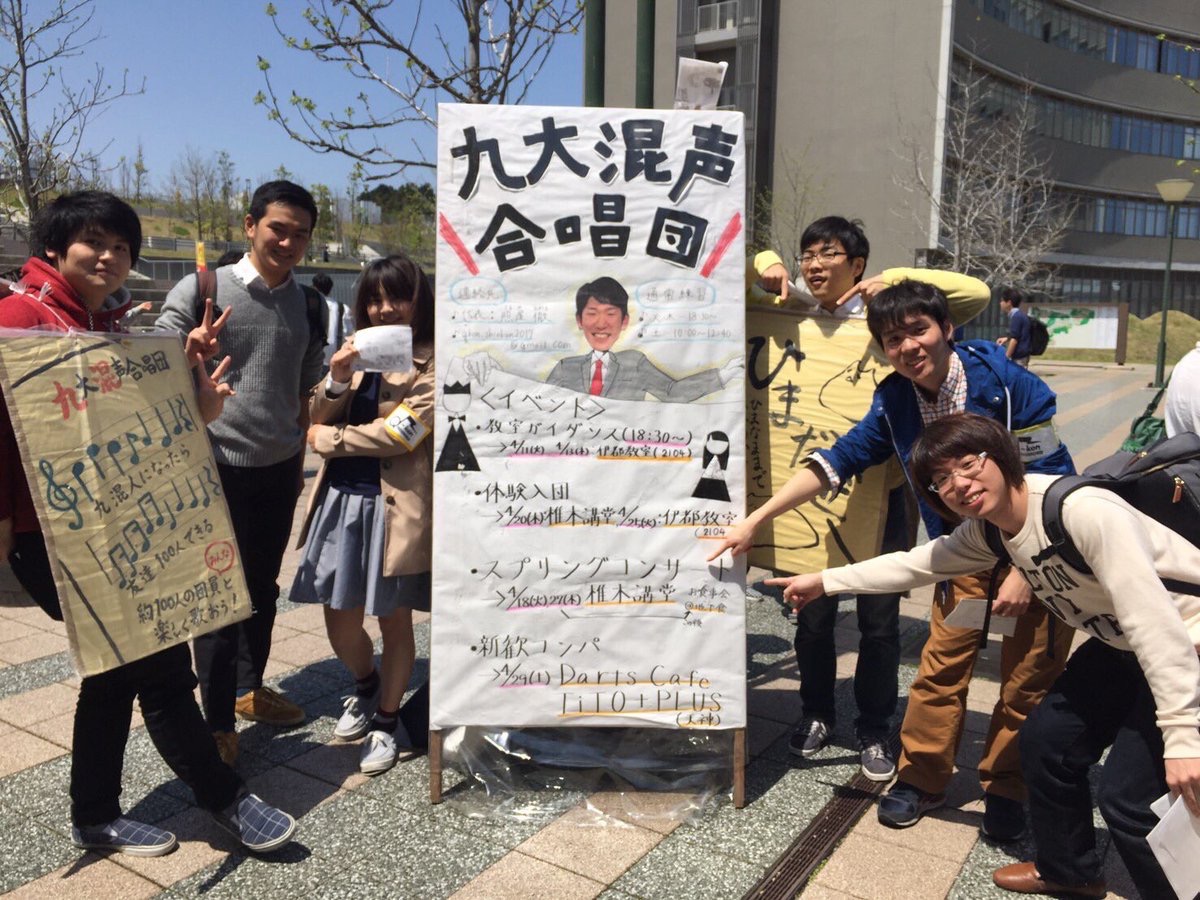 九大混声
合唱団
連絡先
通常練習
・火木－18:30～
・土－10:00～12:40
gmail.com
<イベント>
・教室ガイダンス(18:30～)
→4/11(火) 4/13(木) 伊都教室(2104)
・体験入団
→4/20(木)椎木講堂 4/25(火):伊都教室
(2104)
・スプリングコンサート
→4/18(火) 27(木) 椎木講堂
お食事会
・新歓コンパ
→4/29(土) Darts Cafe
TiTO+PLUS
(天神)
九大混声合唱団
九混人になったら
友達100人できる
みんな
約100人の団員と
楽しく歌おう!
ひまだ
ひまなままで